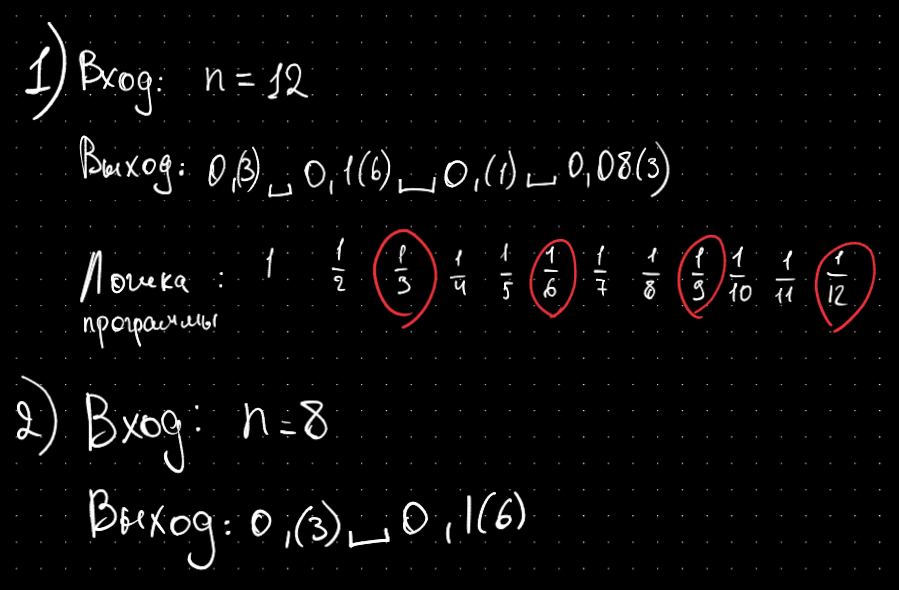 1) Вход: n = 12
Выход: 0,(3)␣0,1(6)␣0,(1)␣0,08(3)
Логика программы: 1 1/2 1/3 1/4 1/5 1/6 1/7 1/8 1/9 1/10 1/11 1/12
2) Вход: n = 8
Выход: 0,(3)␣0,1(6)